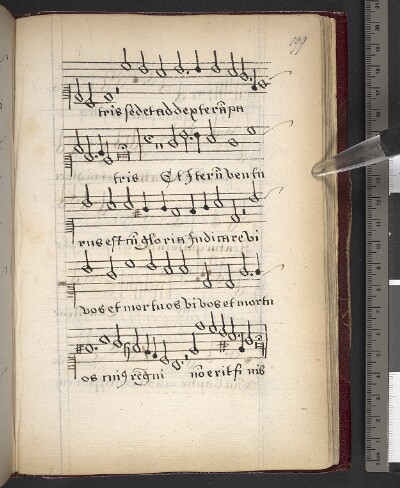 199
tris sedet ad dexterã pa
tris Et Iterũ ventu
rus est cũ gloria Iudicare vi
vos et mortuos vivos et mortu
os cuiꝯ regni nõ erit fi nis